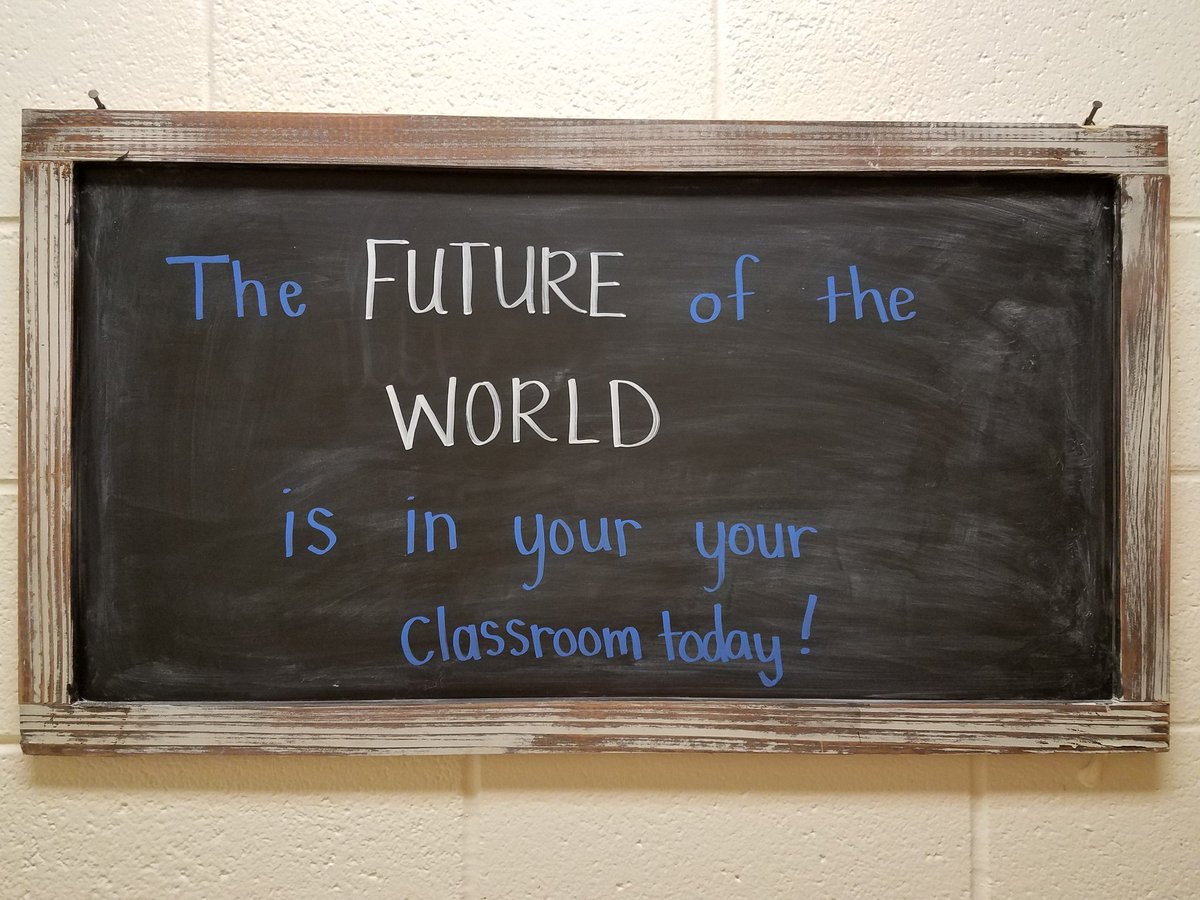 The FUTURE of the
WORLD
is in your your
classroom today!